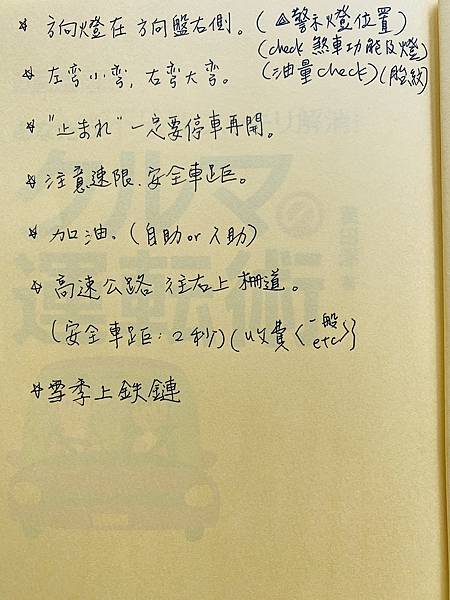 ☆ 方向燈在方向盤右側。(⚠警示燈位置)
(check 煞車功能及燈)
☆ 左彎小彎, 右彎大彎。(油量check)(胎紋)
☆ "止まれ" 一定要停車再開。
☆ 注意速限.安全車距。
☆ 加油. (自助 or 人助)
☆ 高速公路 往右上 柵道。
(安全車距:2秒)(收費<一般 etc>)
☆ 雪季上鉄鏈
クルマの
運転術